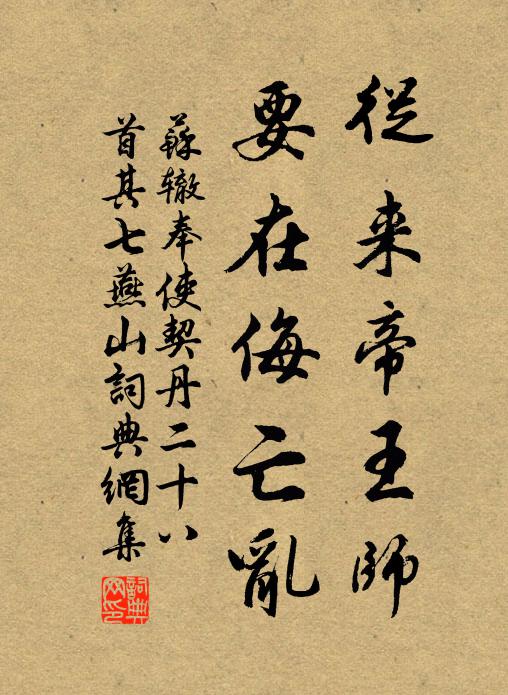 從来帝王師
要在侮亡亂
蘇辙奉使契丹二十八
首其七燕山詞典網集
詞典网印